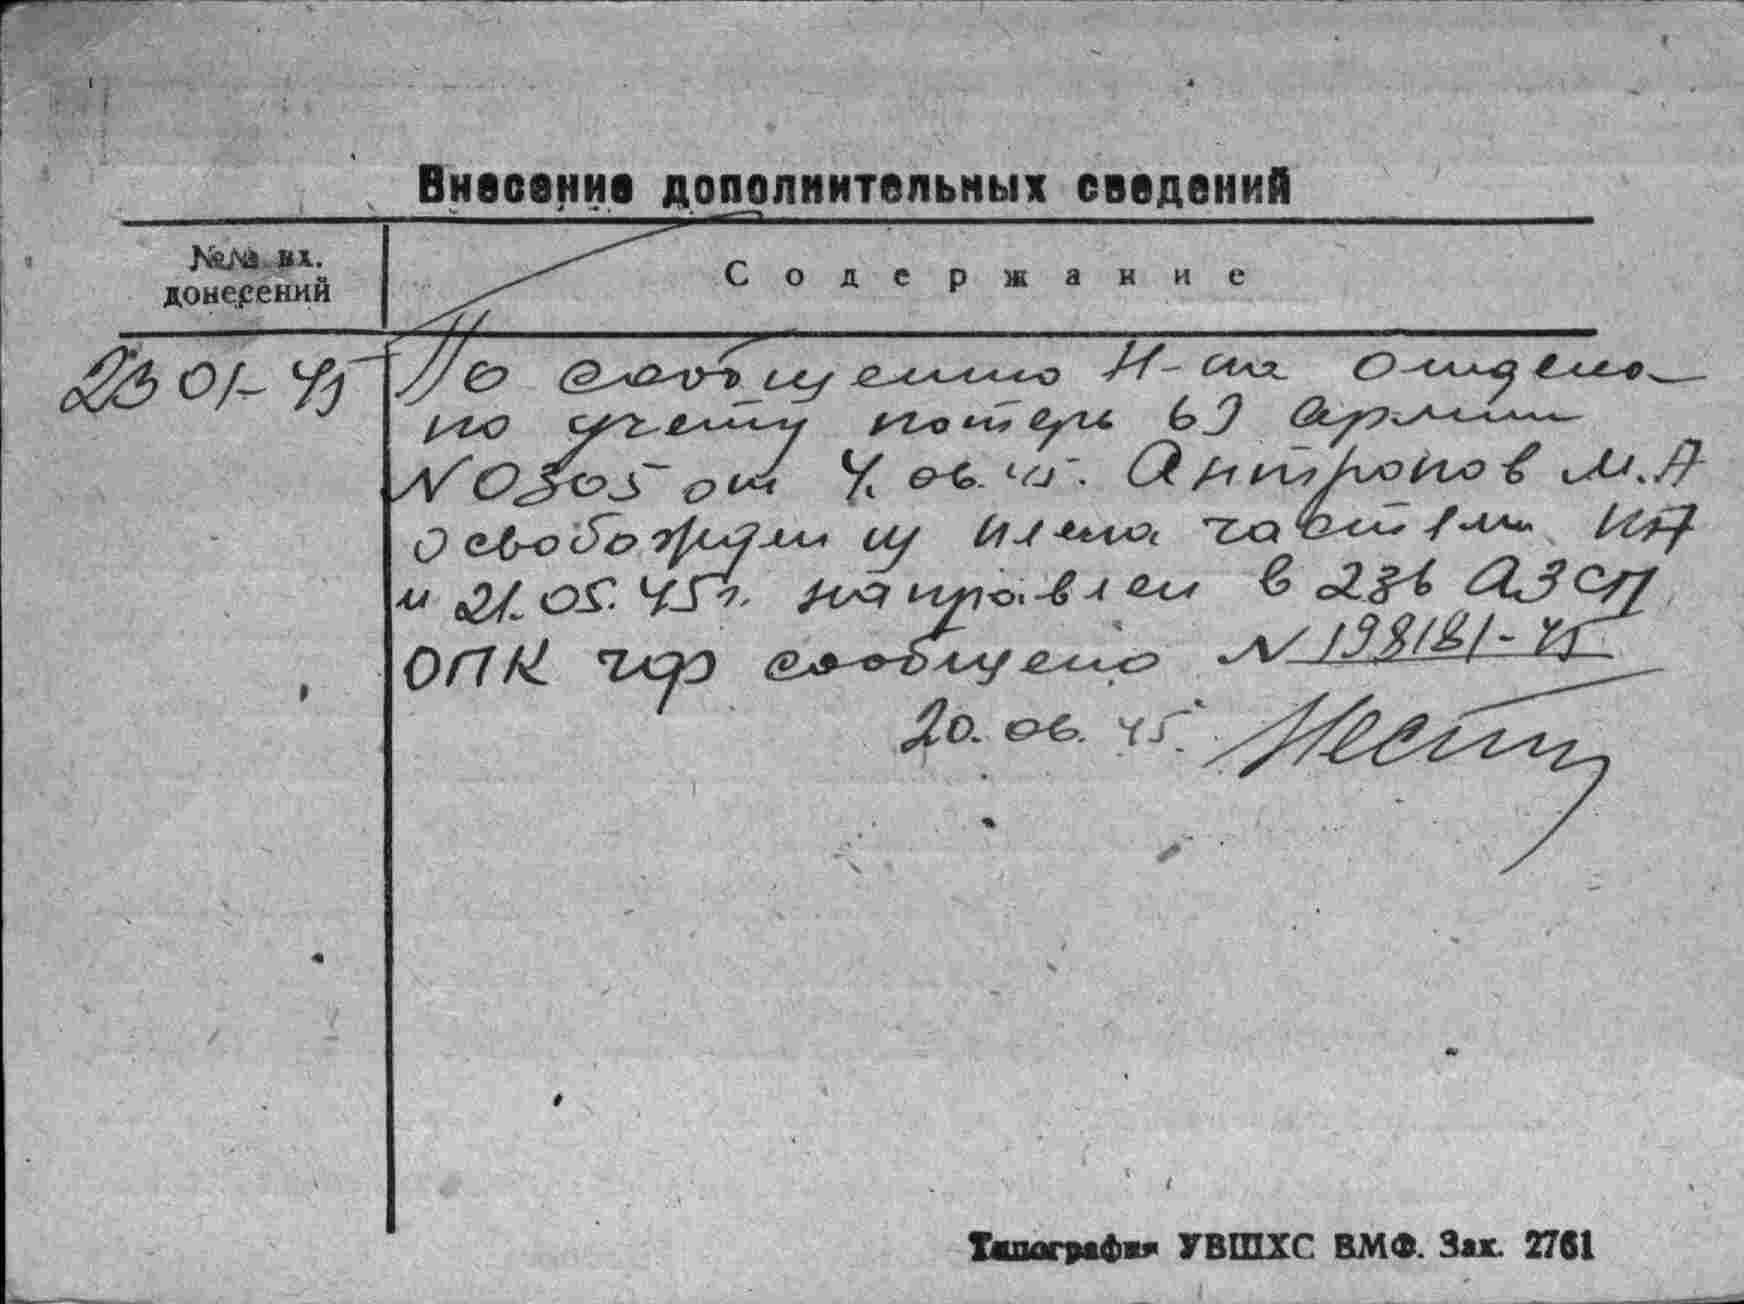 Внесение дополнительных сведений
№№ вх.
донесений
Содержание
2301-45
По сообщению Н-ка отдела
по учету потерь 69 армии
N0305 от 4.06.45. Антропов М.А
освобожден из плена частями КА
и 21.05.45г. направлен в 236 АЗСП
ОПК ГФ сообщено N198181-45
20.06.45.
Типография УВШХС ВМФ. Зак. 2761